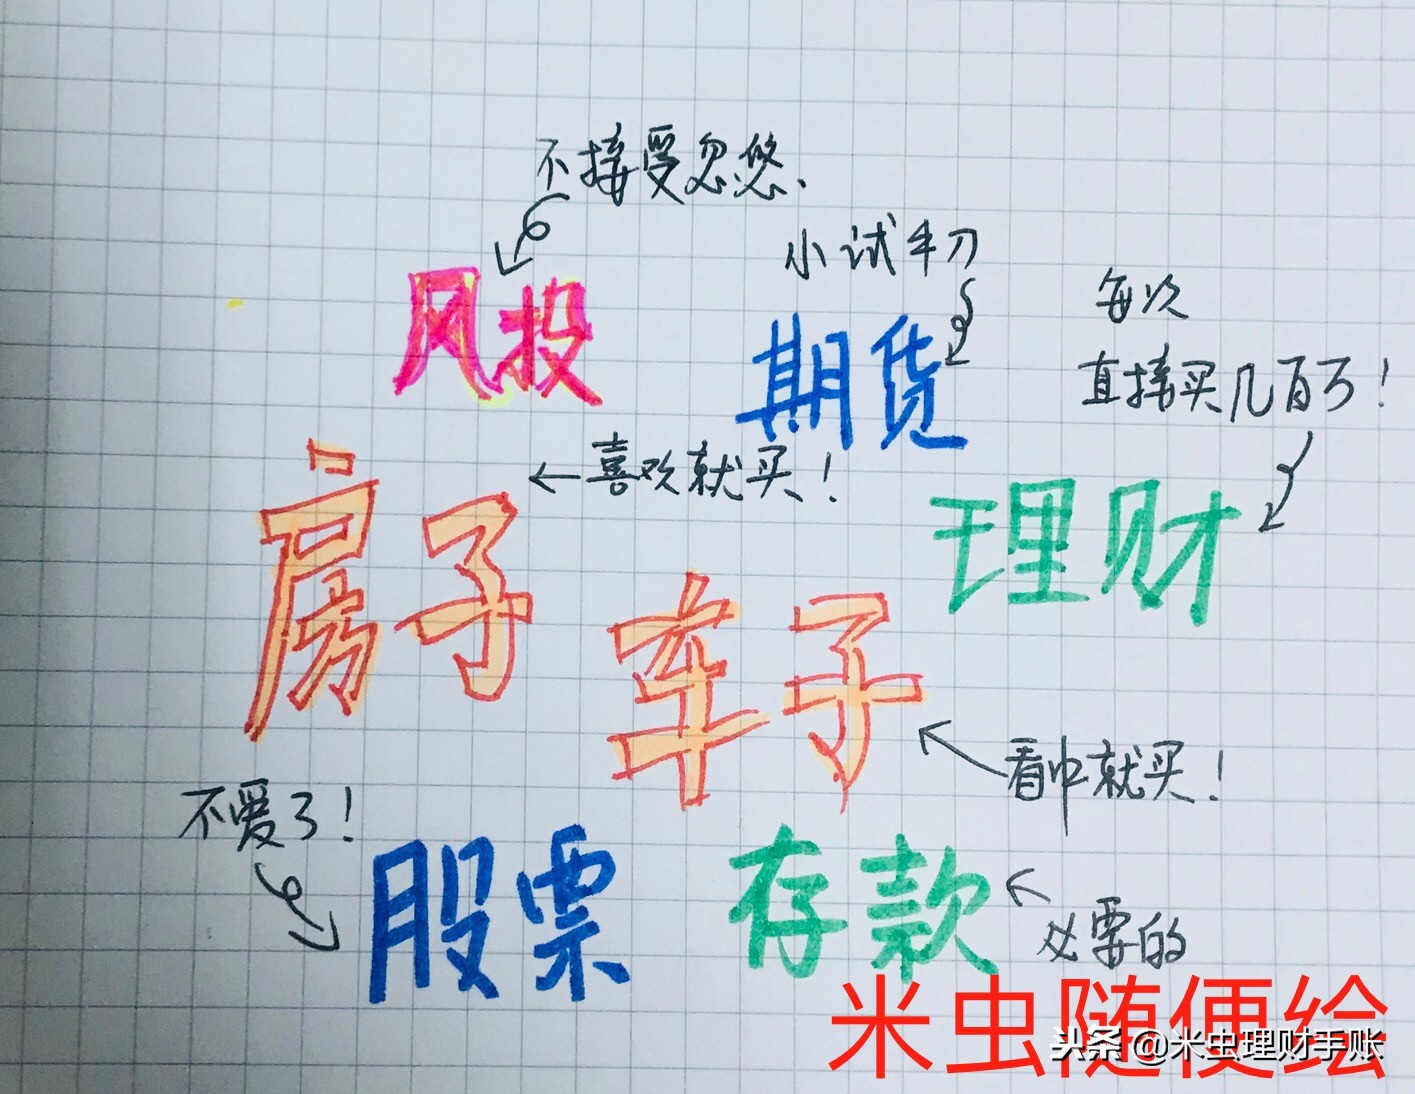 不接受忽悠、
小试牛刀
每次
风投
期货
直接买几百万！
喜欢就买！
理财
房子
车子
看中就买！
不爱了！
股票
存款
必要的
米虫随便绘
头条@米虫理财手账